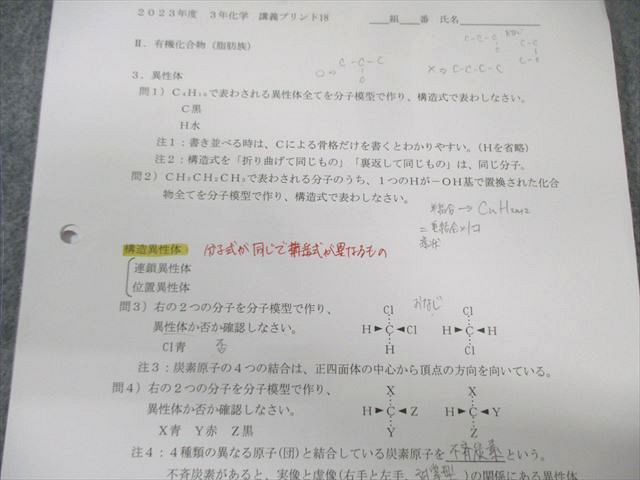 2023年度 3年化学 講義プリント18 ___組___番 氏名
Ⅱ．有機化合物（脂肪族）
C-C-C
C
C-C-C-C
3．異性体
問1）C₄H₁₀で表わされる異性体全てを分子模型で作り、構造式で表わしなさい。
C黒
H水
注1：書き並べる時は、Cによる骨格だけを書くとわかりやすい。（Hを省略）
注2：構造式を「折り曲げて同じもの」「裏返して同じもの」は、同じ分子。
問2）CH₃CH₂CH₃で表わされる分子のうち、1つのHが－OH基で置換された化合
物全てを分子模型で作り、構造式で表わしなさい。
単結合→CnH2n+2
=重結合×1コ
環状
構造異性体 分子式が同じで構造式が異なるもの
連鎖異性体
位置異性体
問3）右の2つの分子を分子模型で作り、
異性体か否か確認しなさい。
Cl青 否
おなじ
Cl Cl
H C Cl H C H
H Cl
注3：炭素原子の4つの結合は、正四面体の中心から頂点の方向を向いている。
問4）右の2つの分子を分子模型で作り、
異性体か否か確認しなさい。
X青 Y赤 Z黒
X X
H C Z H C Y
Y Z
注4：4種類の異なる原子(団)と結合している炭素原子を 不斉炭素 という。
不斉炭素があると、実像と虚像(右手と左手、対掌型 )の関係にある異性体